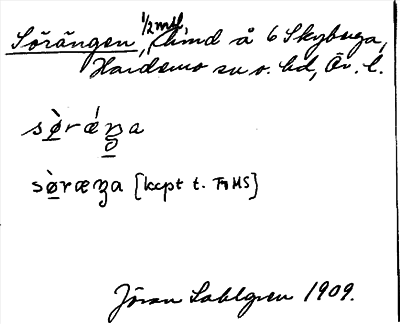 Sörängen, 1/2 mtl, hmd å 6 Skyberga,
Hardemo sn o. hd, Ör. l.
sø̀rǽŋa
sø̀ræŋa [kcpt t. Tr MS]
Jöran Sahlgren 1909.